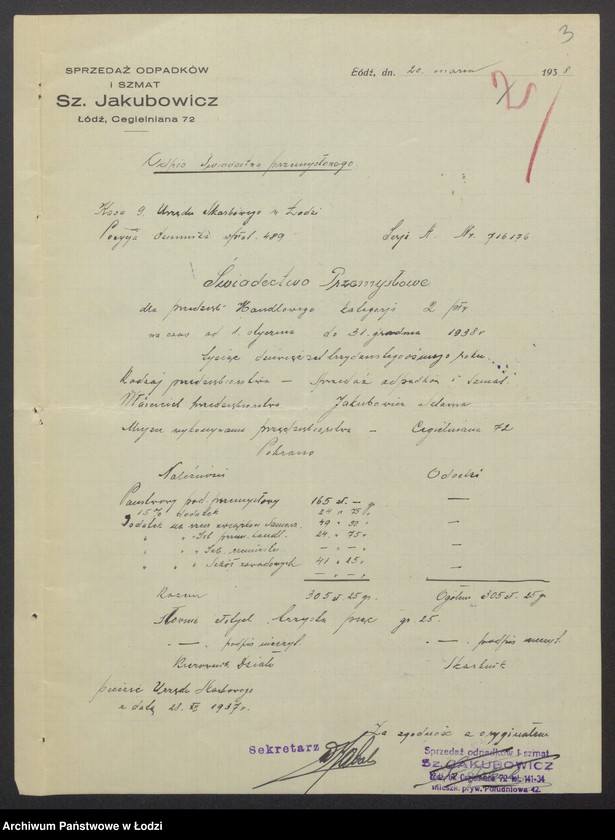 3
SPRZEDAŻ ODPADKÓW
i SZMAT
Sz. Jakubowicz
Łódź, Cegielniana 72
Łódź, dn. 20. marca 1938
Odpis Świadectwa przemysłowego
Kasa 9. Urzędu Skarbowego w Łodzi
Pozycja dziennika 489
Serja A. Nr. 716176
Świadectwo Przemysłowe
dla przedsięb. Handlowego kategorji 2
na czas od 1. stycznia do 31. grudnia 1938 r
tysiąc dziewięćset trzydziestego ósmego roku
Rodzaj przedsiębiorstwa — Sprzedaż odpadków i szmat
Właściciel przedsiębiorstwa Jakubowicz
Miejsce wykonywania przedsiębiorstwa — Cegielniana 72
Pobrano
Należności
Państwowy pod. przemysłowy 165 zł. —
15% dodatek 24 " 75
Dodatek na rzecz
24. " 75
41 " 25
Razem 305 zł. 25 gr.
Ogółem 305 zł. 25 gr
Słownie złotych trzysta pięć gr 25.
— podpis nieczyt.
— podpis nieczyt.
Kierownik Działu
Skarbnik
pieczęć Urzędu Skarbowego
z datą 28. XII 1937 r.
Za zgodność z oryginałem
Sekretarz
Sprzedaż odpadków i szmat
Sz. JAKUBOWICZ
Łódź, ul. Cegielniana 72 tel. 141-34
mieszk. pryw. Południowa 42.
Archiwum Państwowe w Łodzi